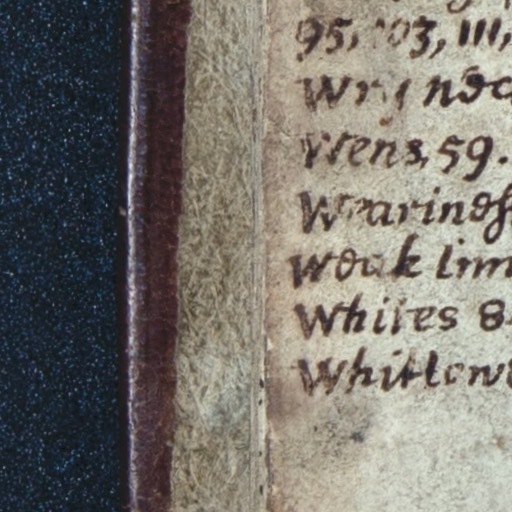 95, 103, 111,
Wry nec
Wens, 59.
Wearines
Weak lim
Whites 8
Whitlow